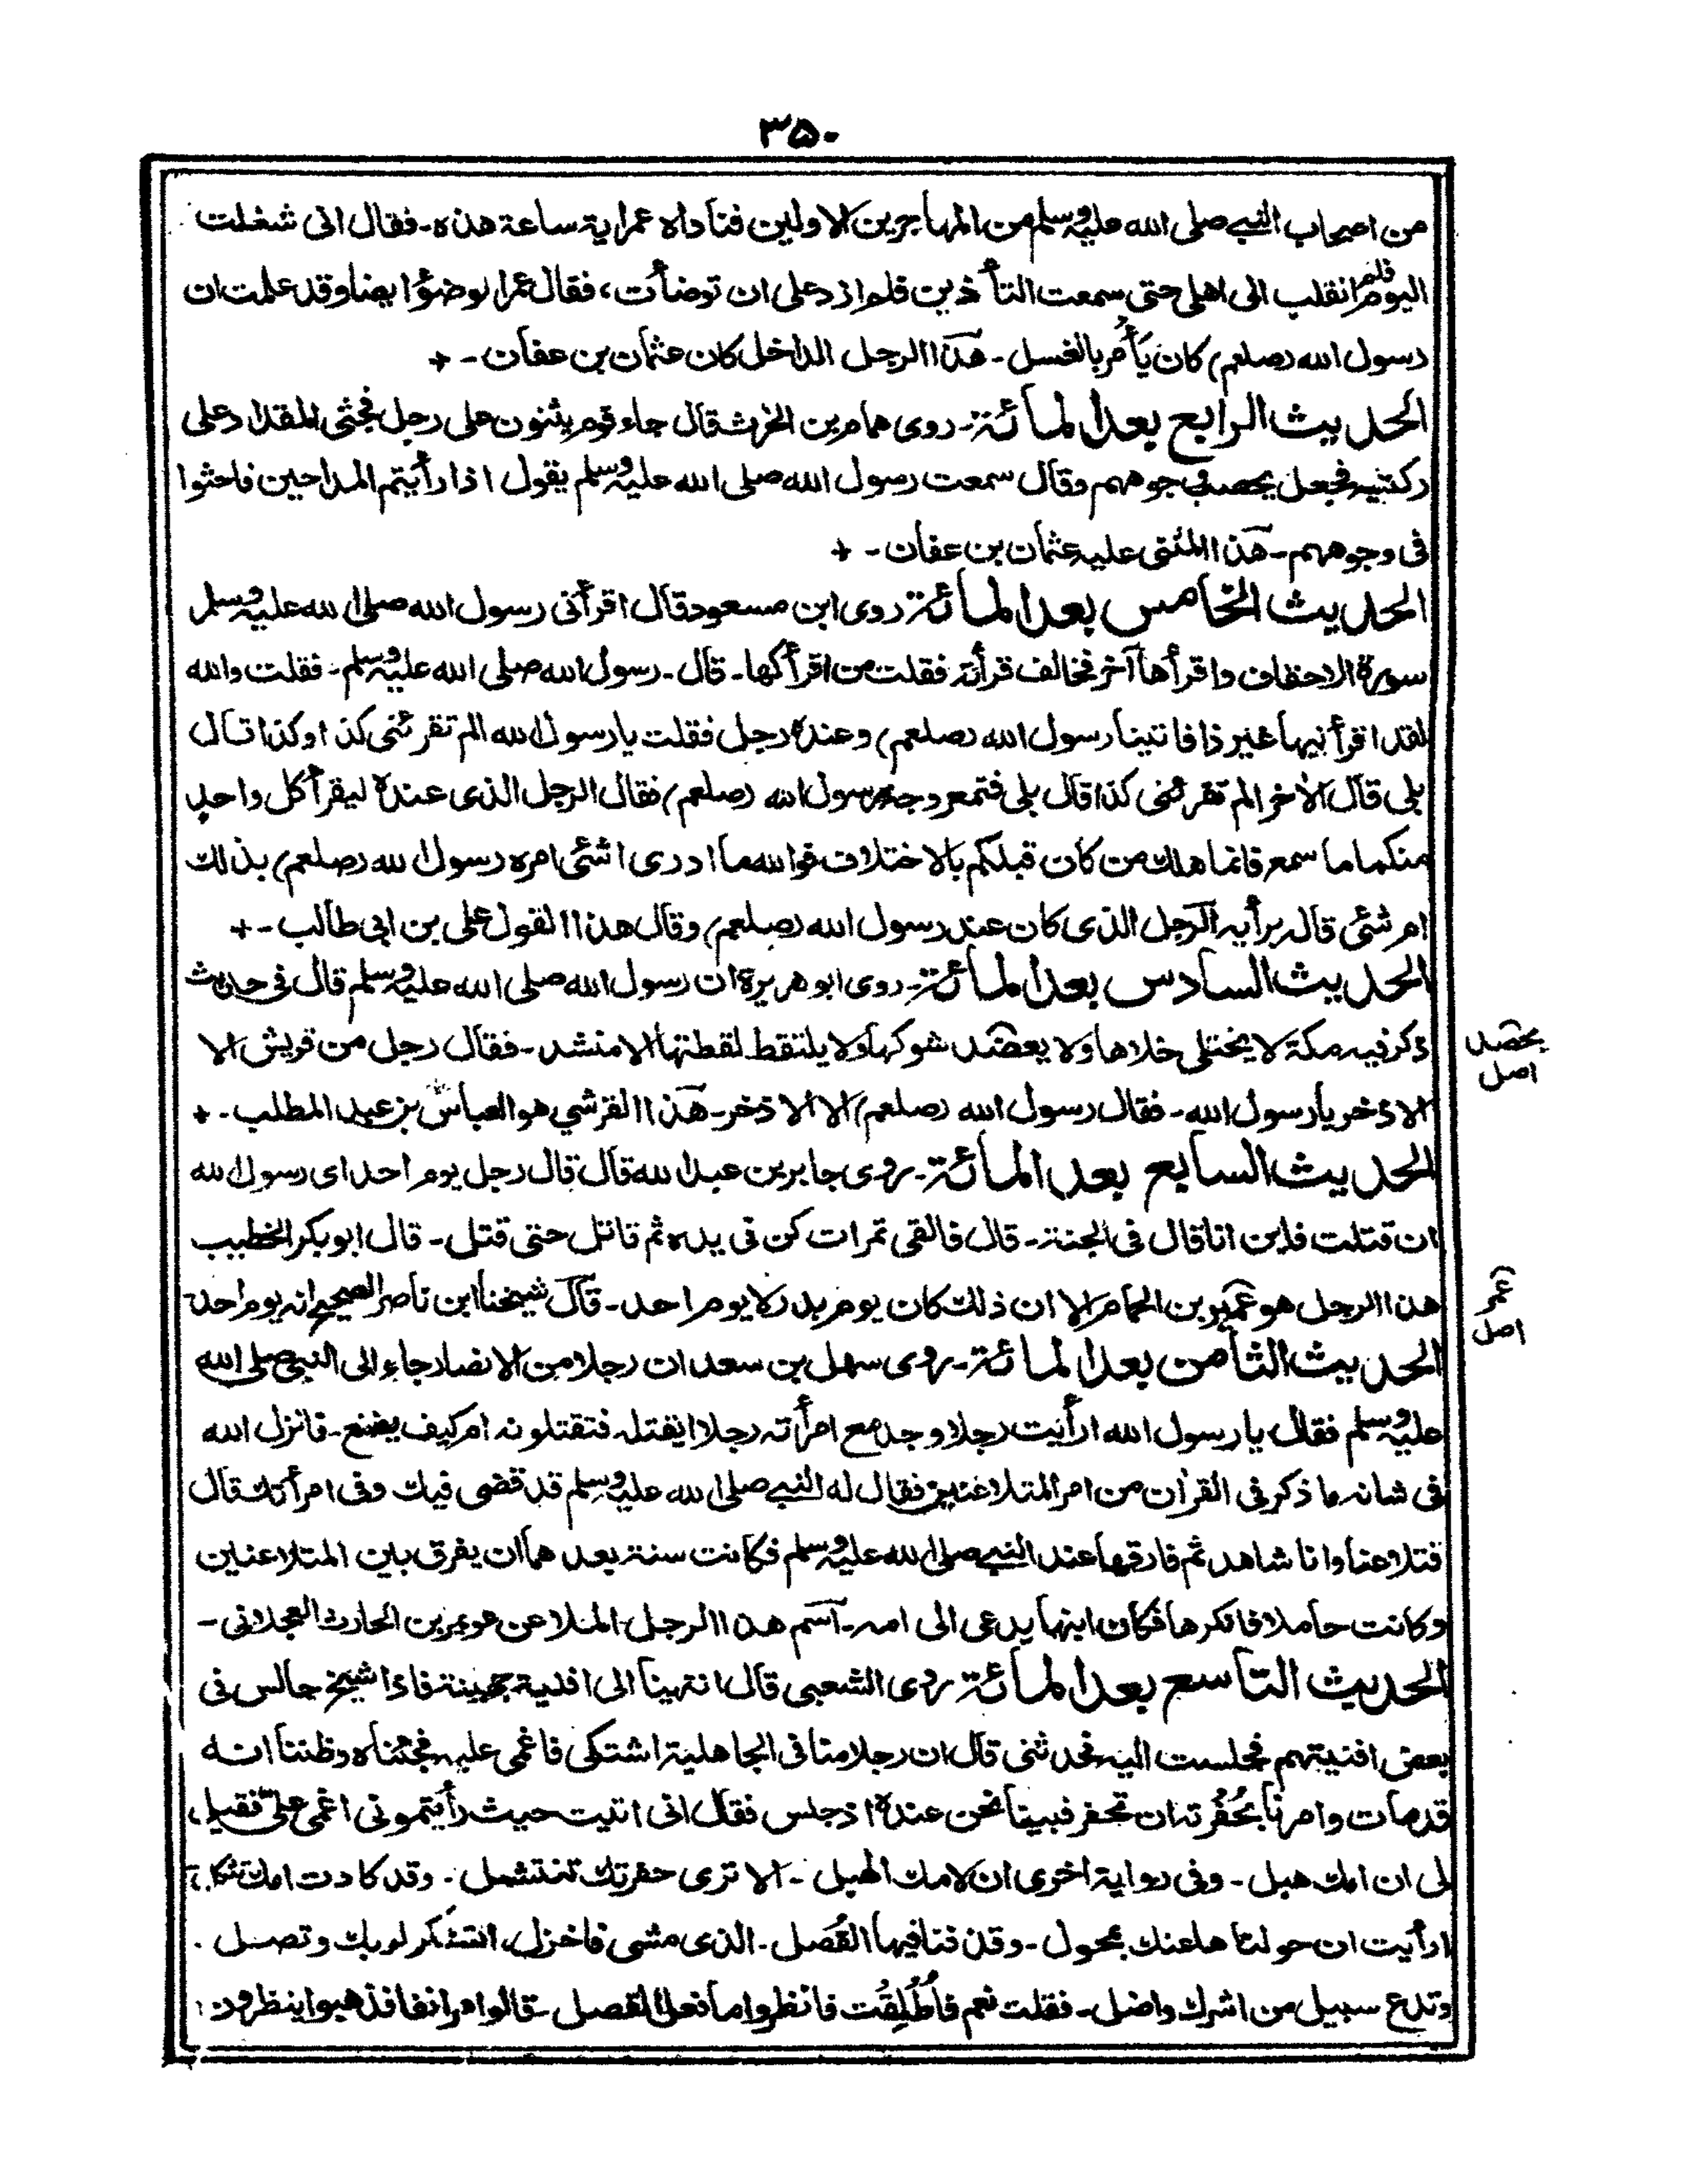 ۳۵۰
من اصحاب النبی صلی الله علیہ وسلم من المهاجرین الاولین فناداہ عمرایۃ ساعۃ ھذہ ۔ فقال انی شغلت
الیوم فلم انقلب الی اھلی حتی سمعت التأذین فلم ازد علی ان توضأت، فقال عمرا لوضؤا یضا وقد علمت ان
رسول الله (صلعم) کان یأمُر بالغسل ۔ ھذا الرجل الداخل کان عثمان بن عفان ۔ +
الحدیث الرابع بعد المائۃ ۔ روی ھمام بن الحٰرث قال جاء قوم یثنون علی رجل فجثی المقداد علی
رکبتیہ فجعل یحصب فی وجوھھم وقال سمعت رسول الله صلی الله علیہ وسلم یقول اذا رأیتم المداحین فاحثوا
فی وجوھھم ۔ ھذا المثنی علیہ عثمان بن عفان ۔ +
الحدیث الخامس بعد المائۃ روی ابن مسعود قال اقرأنی رسول الله صلی الله علیہ وسلم
سورۃ الاحقاف واقرأھا آخر فخالف قرأتہ فقلت من اقرأکھا ۔ قال ۔ رسول الله صلی الله علیہ وسلم ۔ فقلت والله
لقد اقرأنیھا غیر ذا فاتینا رسول الله (صلعم) وعندہ رجل فقلت یا رسول الله الم تقرئنی کذا وکذا قال
بلی قال الاٰخر الم تقرئنی کذا قال بلی فتمعر وجہ رسول الله (صلعم) فقال الرجل الذی عندہ لیقرأ کل واحد
منکما ما سمع فانما ھلک من کان قبلکم بالاختلاف فوالله ما ادری اشئی امرہ رسول الله (صلعم) بذلک
ام شئی قالہ برأیہ الرجل الذی کان عند رسول الله (صلعم) وقال ھذا القول علی بن ابی طالب ۔ +
الحدیث السادس بعد المائۃ ۔ روی ابو ھریرۃ ان رسول الله صلی الله علیہ وسلم قال فی حدیث
ذکر فیہ مکۃ لا یختلی خلاھا ولا یعضد شوکھا ولا یلتقط لقطتھا الا منشد ۔ فقال رجل من قریش الا
الاذخر یا رسول الله ۔ فقال رسول الله (صلعم) الا الاذخر ۔ ھذا القرشی ھو العباس بن عبد المطلب ۔ +
الحدیث السابع بعد المائۃ ۔ روی جابر بن عبد الله قال قال رجل یوم احد ای رسول الله
ان قتلت فاین انا قال فی الجنۃ ۔ قال فالقی تمرات کن فی یدہ ثم قاتل حتی قتل ۔ قال ابوبکر الخطیب
ھذا الرجل ھو عمیر بن الحمام الا ان ذلک کان یوم بدر لا یوم احد ۔ قال شیخنا ابن ناصر الصحیح انہ یوم احد ۔
الحدیث الثامن بعد المائۃ ۔ روی سھل بن سعد ان رجلا من الانصار جاء الی النبی صلی الله
علیہ وسلم فقال یا رسول الله ارأیت رجلا وجد مع امرأتہ رجلا ایقتلہ فتقتلونہ ام کیف یصنع ۔ فانزل الله
فی شانہ ما ذکر فی القراٰن من امر المتلاعنین فقال لہ النبی صلی الله علیہ وسلم قد قضی فیک وفی امرأتک قال
فتلاعنا وانا شاھد ثم فارقھا عند النبی صلی الله علیہ وسلم فکانت سنۃ بعد ھما ان یفرق بین المتلاعنین
وکانت حاملا فانکرھا فکان ابنھا یدعی الی امہ ۔ اسم ھذا الرجل الملاعن عویمر بن الحارث العجلانی ۔
الحدیث التاسع بعد المائۃ روی الشعبی قال انتھینا الی افنیۃ جھینۃ فاذا شیخ جالس فی
بعض افنیتھم فجلست الیہ فحدثنی قال ان رجلا منا فی الجاھلیۃ اشتکی فاغمی علیہ فجئناہ وظننا انہ
قد مات وامرنا بحُفُرتہ ان تحفر فبینا نحن عندہ اذ جلس فقال انی اتیت حیث رأیتمونی اغمی علیّ فقیل
لی ان امک ھبل ۔ وفی روایۃ اخری ان لامک الھبل ۔ الا تری حفرتک تنتشل ۔ وقد کادت امک تثکل
ارأیت ان حولناھا عنک بمحول ۔ وقذفنا فیھا القُصل ۔ الذی مشی فاخزل، اتشکر لربک وتصل ۔
وتدع سبیل من اشرک واضل ۔ فقلت نعم فاُطلِقُت فانظروا ما فعل القصل ۔ قالوا مر اٰنفا فذھبوا ینظرون
یحصد
اصل
عمر
اصل